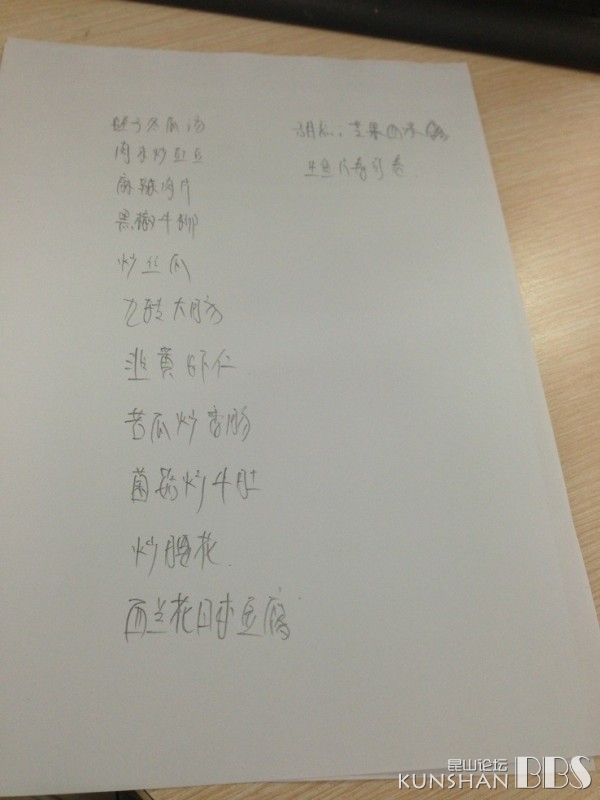 冬瓜汤
肉末炒豇豆
麻辣肉片
黑椒牛柳
炒丝瓜
九转大肠
韭黄虾仁
苦瓜炒香肠
菌菇炒牛肚
炒腰花
西兰花日本豆腐
苹果西米
生鱼片寿司卷
昆山论坛
KUNSHAN BBS